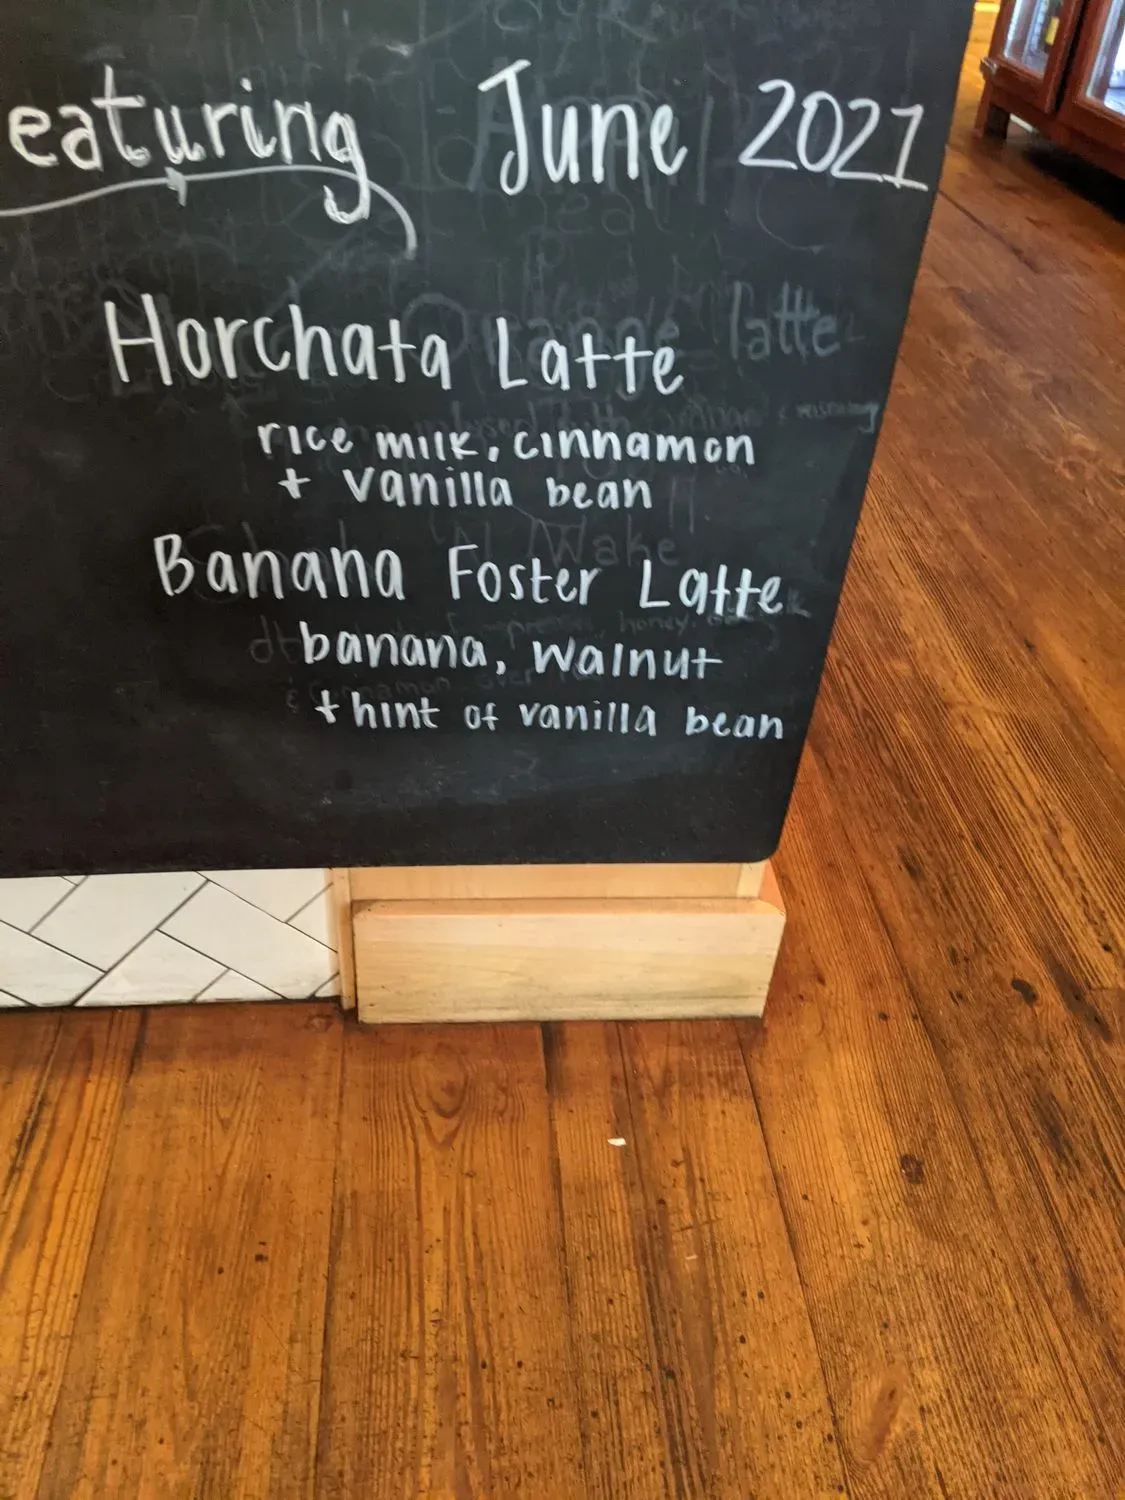 eaturing June 2021
Horchata Latte
latte
rice milk, cinnamon
+ vanilla bean
Wake
Banana Foster Latte
honey
banana, walnut
cinnamon
+ hint of vanilla bean